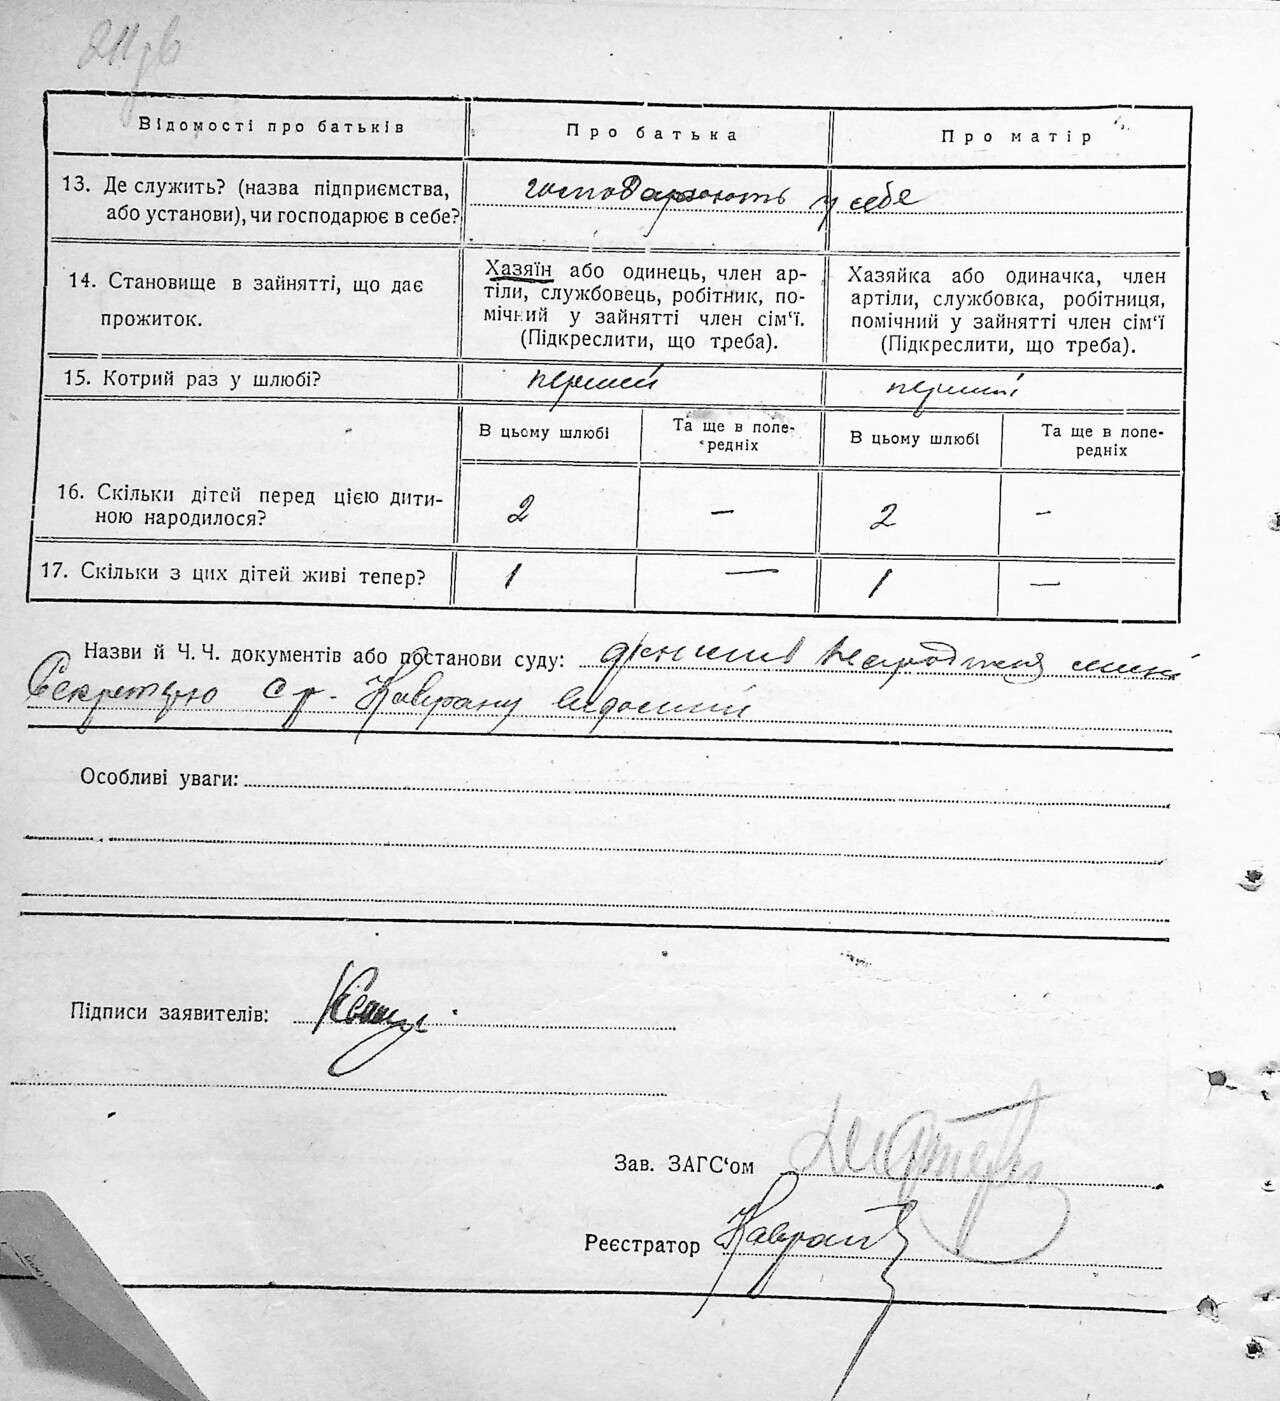 Відомості про батьків Про батька Про матір
13. Де служить? (назва підприємства, господарюють у себе
або установи), чи господарює в себе?
14. Становище в зайнятті, що дає
прожиток.
Хазяїн або одинець, член ар-
тіли, службовець, робітник, по-
мічний у зайнятті член сім‘ї.
(Підкреслити, що треба).
Хазяйка або одиначка, член
артіли, службовка, робітниця,
помічний у зайнятті член сім‘ї
(Підкреслити, що треба).
15. Котрий раз у шлюбі? перший перший
В цьому шлюбі
Та ще в попе-
редніх
В цьому шлюбі
Та ще в попе-
редніх
16. Скільки дітей перед цією дити-
ною народилося?
2 — 2 —
17. Скільки з цих дітей живі тепер? 1 — 1 —
Назви й Ч. Ч. документів або постанови суду:
Секретарю с/р. Каврану
Особливі уваги:
Підписи заявителів:
Зав. ЗАГС‘ом
Реєстратор